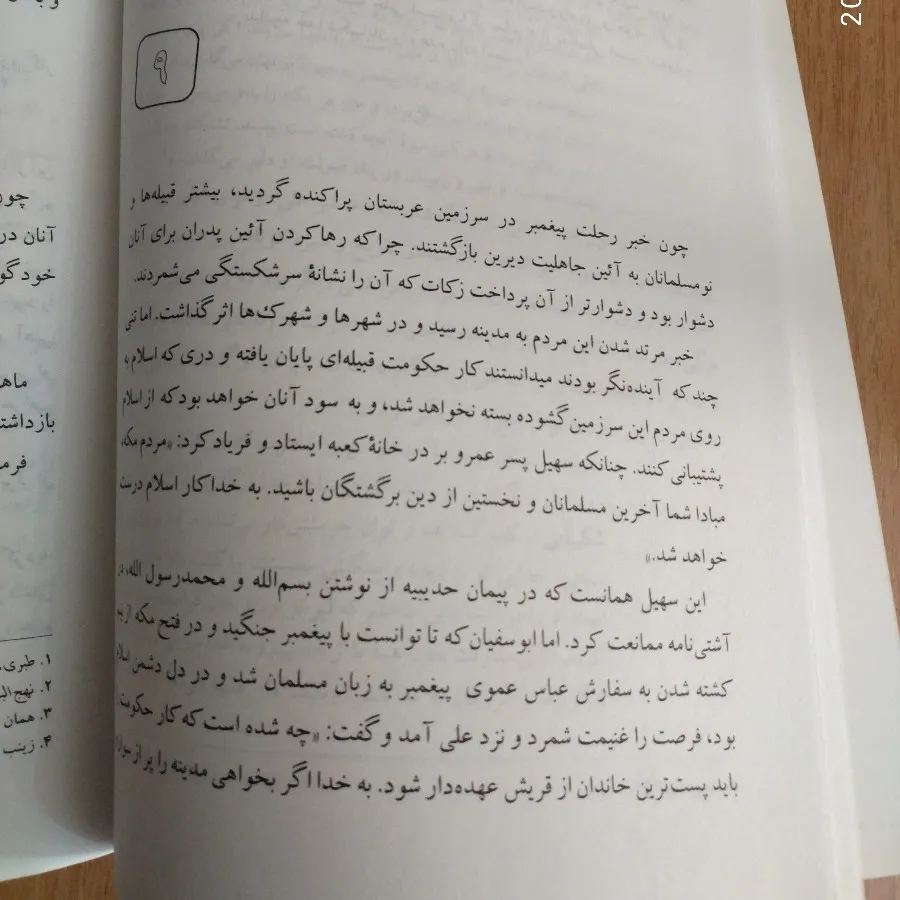 ۹
چون خبر رحلت پیغمبر در سرزمین عربستان پراکنده گردید، بیشتر قبیله‌ها و
نومسلمانان به آئین جاهلیت دیرین بازگشتند. چراکه رهاکردن آئین پدران برای آنان
دشوار بود و دشوارتر از آن پرداخت زکات که آن را نشانهٔ سرشکستگی می‌شمردند.
خبر مرتد شدن این مردم به مدینه رسید و در شهرها و شهرک‌ها اثر گذاشت. اما تنی
چند که آینده‌نگر بودند میدانستند کار حکومت قبیله‌ای پایان یافته و دری که اسلام به
روی مردم این سرزمین گشوده بسته نخواهد شد، و به سود آنان خواهد بود که از اسلام
پشتیبانی کنند. چنانکه سهیل پسر عمرو بر در خانهٔ کعبه ایستاد و فریاد کرد: «مردم مکه،
مبادا شما آخرین مسلمانان و نخستین از دین برگشتگان باشید. به خدا کار اسلام درست
خواهد شد.»
این سهیل همانست که در پیمان حدیبیه از نوشتن بسم‌الله و محمدرسول الله، در
آشتی‌نامه ممانعت کرد. اما ابوسفیان که تا توانست با پیغمبر جنگید و در فتح مکه از بیم
کشته شدن به سفارش عباس عموی پیغمبر به زبان مسلمان شد و در دل دشمن اسلام
بود، فرصت را غنیمت شمرد و نزد علی آمد و گفت: «چه شده است که کار حکومت
باید پست‌ترین خاندان از قریش عهده‌دار شود. به خدا اگر بخواهی مدینه را پر از
چون
آنان در
خود گو
ماه
بازداشت
۱. طبری،
۲. نهج
۳. همان
۴. زینب
20